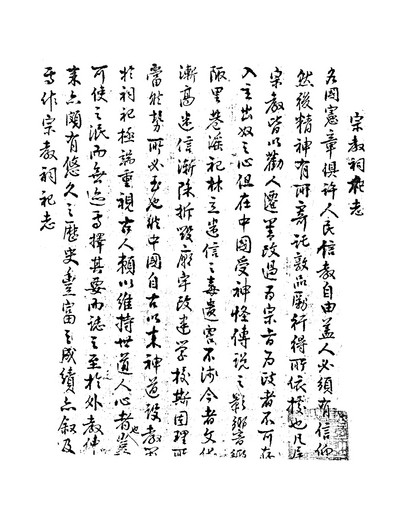 宗教祠祀志
各國憲章俱許人民信教自由蓋人必須有信仰
然後精神有所寄託敦品勵行得所依據也凡屬
宗教皆以勸人遷善改過為宗旨為政者不可存
入主出奴之心但在中國受神怪傳說之影響窮鄉
陋里巷淫祀林立迷信之毒遺害不淺今者文化
漸高迷信漸除拆毀廟宇改建學校斯固理所
當然勢所必至也然中國自古以來神道設教
於祠祀極端重視古人賴以維持世道人心者也豈
可使之泯而無迹焉擇其要而誌之至於外教傳
來亦頗有悠久之歷史豐富之成績亦敘及
焉作宗教祠祀志